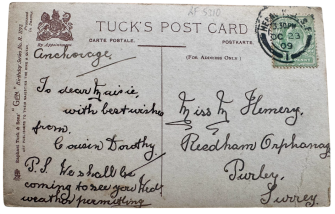 AF 5710
TUCK'S POST CARD
CARTE POSTALE.
POSTKARTE.
(FOR ADDRESS ONLY)
OC 23
09
Anchorage.
To dear Maisie,
with best wishes
from
Cousin Dorothy.
P.S. We shall be
coming to see you Wed
weather permitting
Miss M Flemery.
Reedham Orphanag
Purley.
Surrey.
Raphael Tuck & Sons'